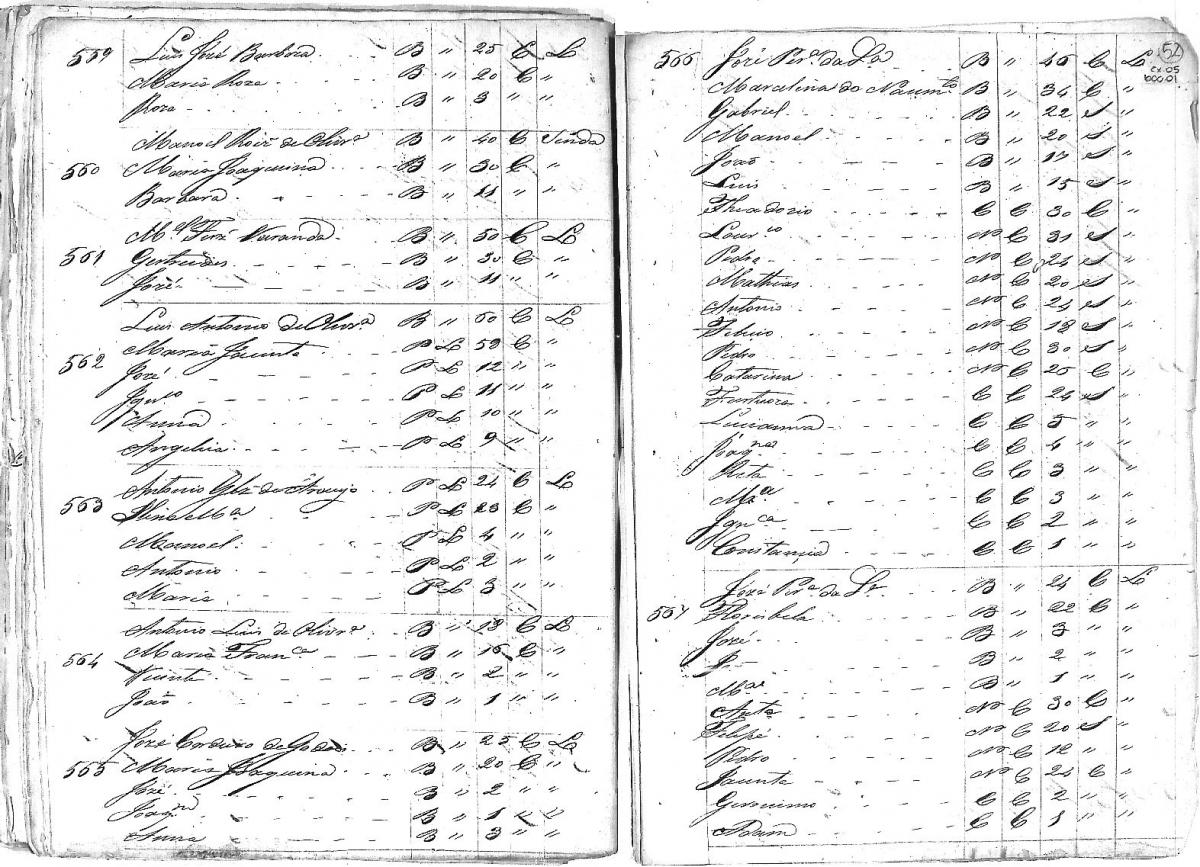 559 Luis José Barboza B " 25 C L
Maria Roza B " 20 C "
Roza B " 3 " "
Manoel Roiz de Olivrª B " 40 C Venda
560 Maria Joaquina B " 30 C "
Barbara B " 11 " "
Mel José Varanda B " 50 C L
561 Gertrudes B " 30 C "
José B " 11 " "
Luis Antonio de Olivrª B " 60 C L
562 Maria Jacinta P L 59 C "
José P L 12 " "
Ignco P L 11 " "
Anna P L 10 " "
Angelica P L 9 " "
Antonio Glz de Araujo P L 24 C L
563 Mª P L 23 C "
Manoel P L 4 " "
Antonio P L 2 " "
Maria P L 3 " "
Antonio Luis de Olivrª B " 19 C L
564 Maria Franca B " 16 C "
Vicente B " 2 " "
João B " 1 " "
José Cordeiro de Godoi B " 25 C L
565 Maria Joaquina B " 20 C "
José B " 2 " "
Joaqm B " 1 " "
Anna B " 3 " "
52
cx.05
566 José Pirª da Sª B " 45 C L
Marcelina do Nasmto B " 34 C "
Gabriel B " 22 S "
Manoel B " 20 S "
João B " 17 S "
Luis B " 15 S "
Theodozio C C 30 C "
Lourco No C 31 S "
Pedro No C 24 S "
Mathias No C 20 S "
Antonio No C 24 S "
No C 18 S "
Pedro No C 30 S "
Catarina No C 25 C "
C C 24 S "
Lucianna C C 5 " "
Joaqna C C 4 " "
Rita C C 3 " "
Mª C C 3 " "
Ignca C C 2 " "
Constancia C C 1 " "
José Pirª da Sª B " 24 C L
567 Florisbela B " 22 C "
José B " 3 " "
B " 2 " "
Mª B " 1 " "
No C 30 C "
Felipe No C 20 S "
Pedro No C 12 " "
Jacinta No C 24 C "
Geronimo C C 2 " "
Adam C C 1 " "